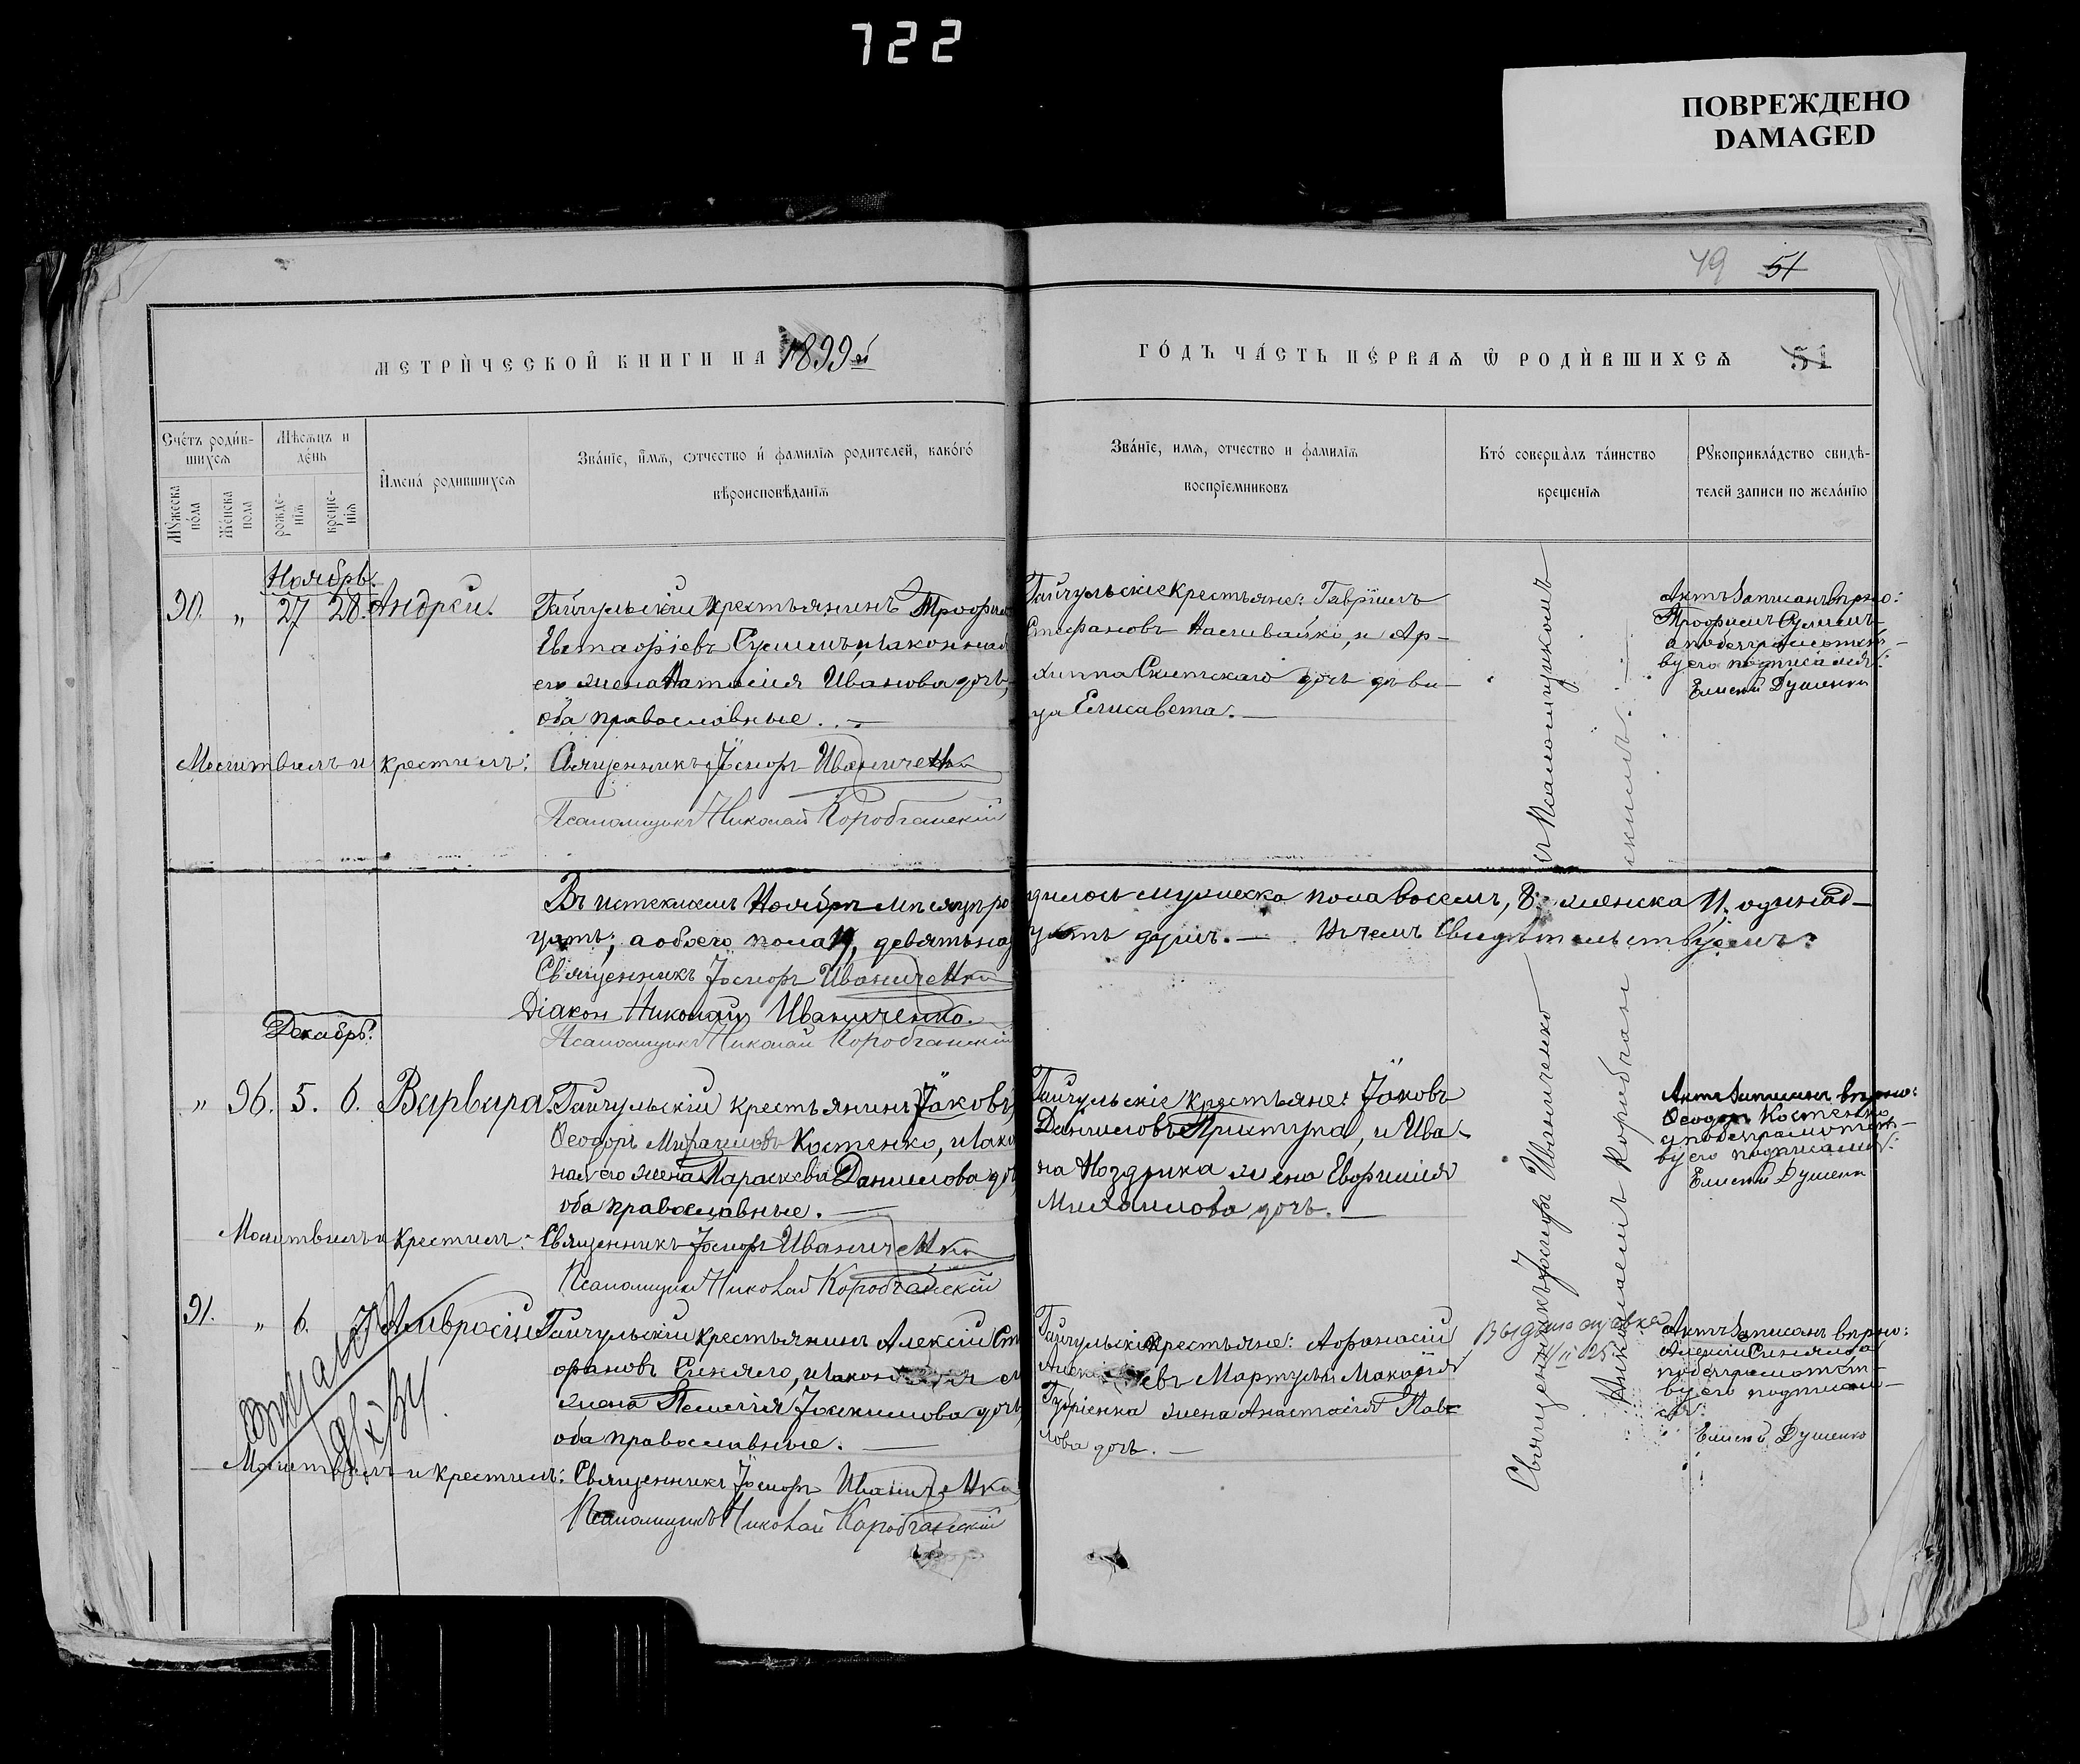 722
ПОВРЕЖДЕНО
DAMAGED
49 51
МЕТРИ́ЧЕСКОЙ КНИГИ НА 1899 й
ГО́ДЪ ЧА́СТЬ ПЕ́РВАѦ Ѿ РОДИ́ВШИХСѦ 51
Сче́тъ роди́в-
шихсѧ
Мѣсѧцъ и
де́нь
И҆мена́ родившихсѧ
Зва́нїе, и҆́мѧ, ѻтчество и҆ фамилїѧ родителей, како́гѡ
вѣроисповѣданїѧ
Зва́нїе, имѧ, отчество и фамилїѧ
воспрїемниковъ
Кто́ соверша́лъ та́инство
крещенїѧ
Рꙋкоприкла́дство свидѣ-
телей записи по жела́нїю
Мꙋжеска
по́ла
Же́нска
пола
рожде-
нїѧ
креще-
нїѧ
Ноябрь.
90. „ 27 28. Андрей.
Гайчульскій крестьянинъ Трофимъ
Евстафіевъ Сушимъ, и законная
его жена Наталія Иванова дочь,
оба православные. —
Гайчульскіе крестьяне: Гавріилъ
Стефановъ Наливайко, и Ар-
хиппа Скитскаго дочь дѣви-
ца Елисавета. —
Актъ записанъ вѣрно:
Трофимъ Сушимъ
а по безграмотст-
ву его подписался:
Елисей Душенко
Молитвилъ и крестилъ: Священникъ Іосифъ Иваниченко
Псаломщикъ Николай Коробчанскій
Въ истекшемъ Ноябрѣ мѣсяцѣ ро
дилось мужеска пола восемь, 8; женска 11, одинад-
цать; а обоего пола 19, девятьнад
цать душъ. — Въ чемъ свидѣтельствуемъ:
Священникъ Іосифъ Иваниченко
Діаконъ Николай Иваниченко.
Псаломщикъ Николай Коробчанскій
Декабрь.
„ 96. 5. 6. Варвара.
Гайчульскій крестьянинъ Іаковъ
Ѳеодоръ Костенко, и зако
ная его жена Параскева Данилова дочь
оба православные. —
Гайчульскіе крестьяне: Іаковъ
Даниловъ Приступа, и Ива-
на Ноздрика жена Евфимія
Михаилова дочь. —
Актъ записанъ вѣрно:
Ѳеодоръ Костенко
а по безграмотст-
ву его подписался:
Елисей Душенко
Молитвилъ и крестилъ: Священникъ Іосифъ Иваниченко
Псаломщикъ Николай Коробчанскій
91. „ 6. 7. Амвросій
Гайчульскій крестьянинъ Алексій Сте
фановъ Синяго, и законная его
жена Пелагія Іоакимова дочь,
оба православные. —
Гайчульскіе крестьяне: Афанасій
евъ Мартусъ, и Макарія
Губріенка жена Анастасія Пав-
лова дочь. —
Выдана справка
Актъ записанъ вѣрно:
Алексій Синяго а
по безграмотст-
ву его подписал-
ся:
Елисей Душенко
Молитвилъ и крестилъ: Священникъ Іосифъ Иваниченко
Псаломщикъ Николай Коробчанскій
Священникъ Іосифъ Иваниченко съ Псаломщикомъ
Николаемъ Коробчанскимъ. —